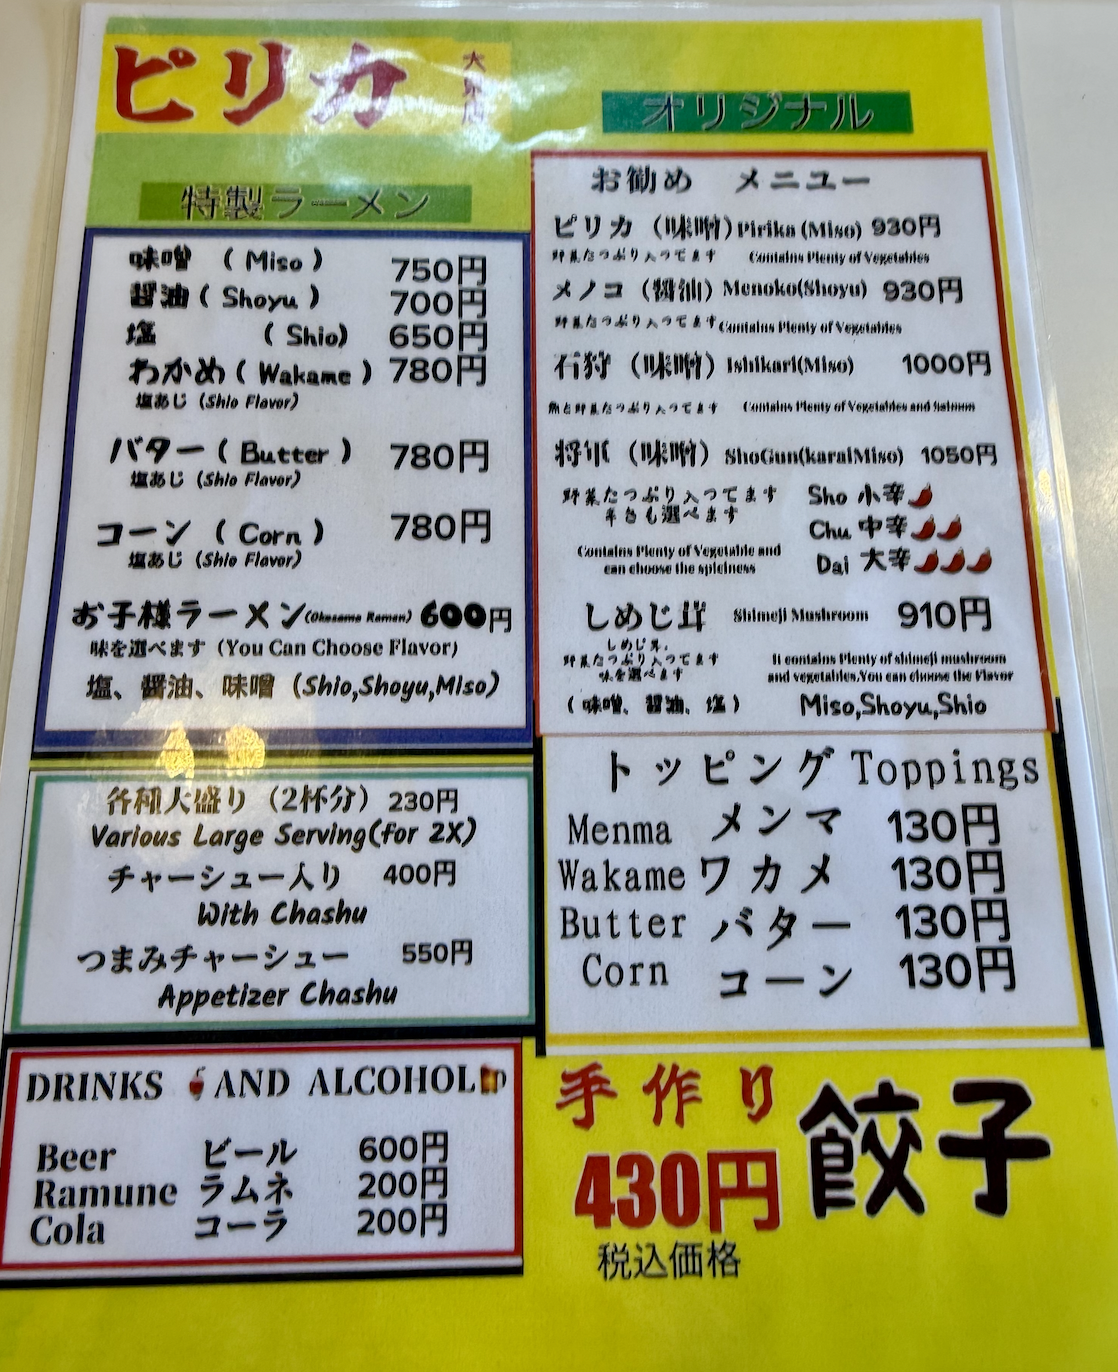 ピリカ
特製ラーメン
味噌 ( Miso ) 750円
醤油 ( Shoyu ) 700円
塩 ( Shio) 650円
わかめ ( Wakame ) 780円
塩あじ (Shio Flavor)
バター ( Butter ) 780円
塩あじ (Shio Flavor)
コーン ( Corn ) 780円
塩あじ (Shio Flavor)
お子様ラーメン(Okosama Ramen) 600円
味を選べます (You Can Choose Flavor)
塩、醤油、味噌 (Shio,Shoyu,Miso)
各種大盛り (2杯分) 230円
Various Large Serving(for 2X)
チャーシュー入り 400円
With Chashu
つまみチャーシュー 550円
Appetizer Chashu
DRINKS AND ALCOHOL
Beer ビール 600円
Ramune ラムネ 200円
Cola コーラ 200円
オリジナル
お勧め メニュー
ピリカ (味噌) Pirika (Miso) 930円
野菜たっぷり入ってます Contains Plenty of Vegetables
メノコ (醤油) Menoko(Shoyu) 930円
野菜たっぷり入ってます Contains Plenty of Vegetables
石狩 (味噌) Ishikari(Miso) 1000円
魚と野菜たっぷり入ってます Contains Plenty of Vegetables and Salmon
将軍 (味噌) ShoGun(karaiMiso) 1050円
野菜たっぷり入ってます
辛さも選べます
Sho 小辛
Chu 中辛
Dai 大辛
Contains Plenty of Vegetable and
can choose the spiciness
しめじ茸 Shimeji Mushroom 910円
しめじ茸、
野菜たっぷり入ってます
味を選べます
It contains Plenty of shimeji mushroom
and vegetables.You can choose the Flavor
(味噌、醤油、塩) Miso,Shoyu,Shio
トッピング Toppings
Menma メンマ 130円
Wakame ワカメ 130円
Butter バター 130円
Corn コーン 130円
手作り
餃子
430円
税込価格